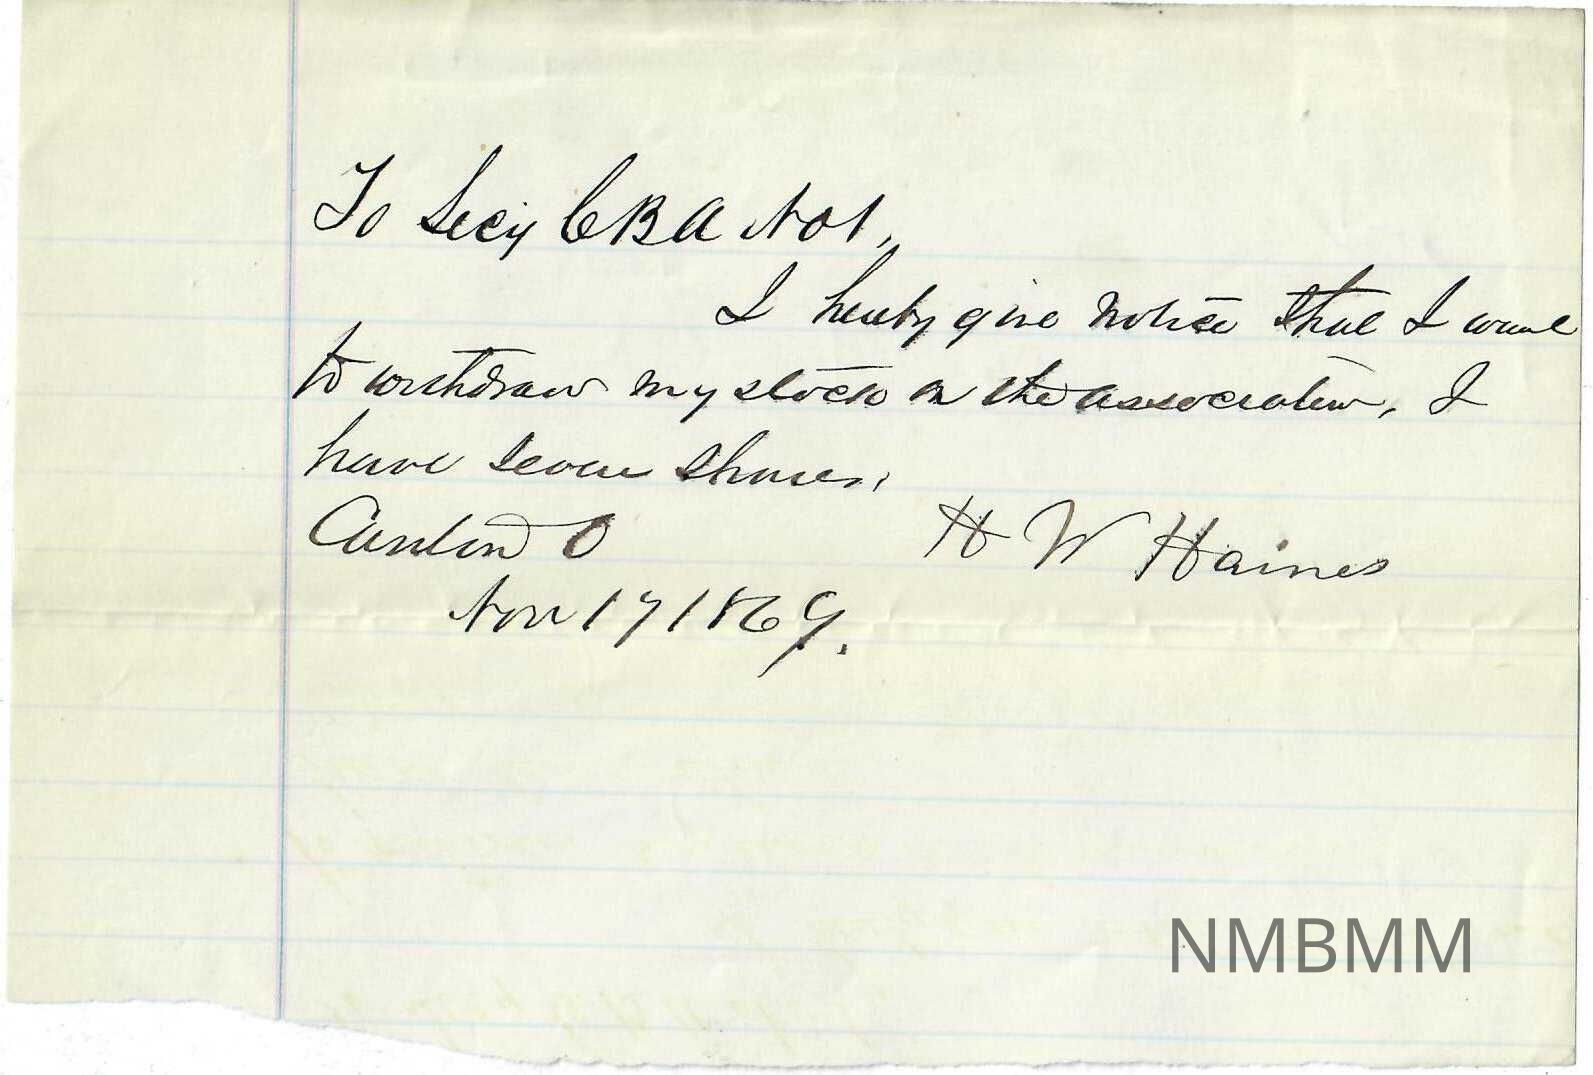 To Secy C B A No 1,
I hereby give notice that I want
to withdraw my stock in the association, I
have seven shares.
Canton O
H W Haines
Nov 17 1869.
NMBMM